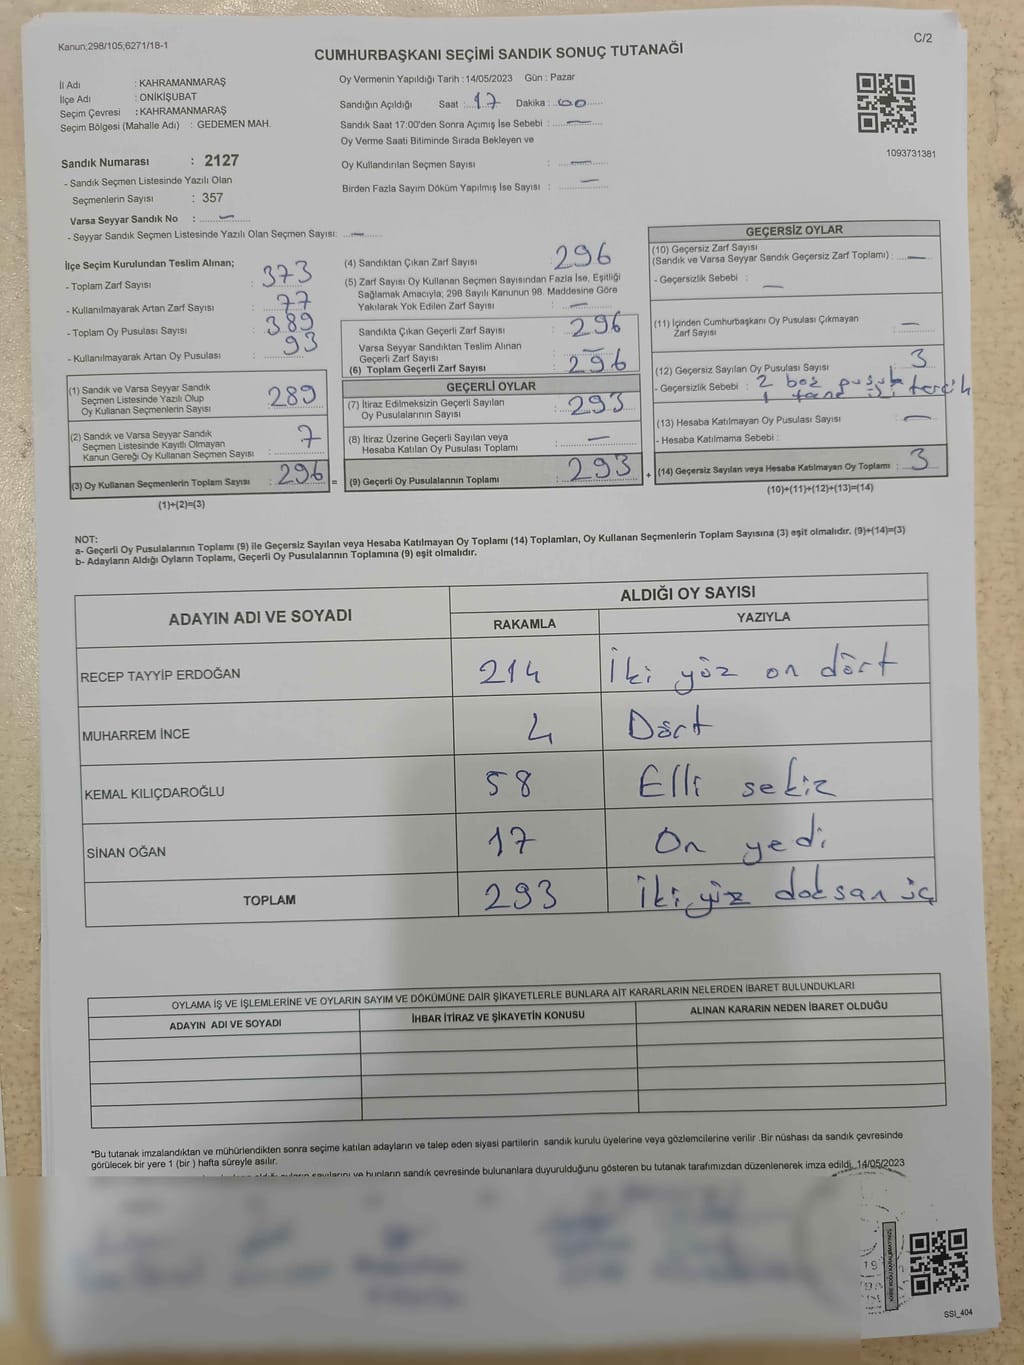 Kanun;298/105,6271/18-1
C/2
CUMHURBAŞKANI SEÇİMİ SANDIK SONUÇ TUTANAĞI
İl Adı : KAHRAMANMARAŞ
İlçe Adı : ONİKİŞUBAT
Seçim Çevresi : KAHRAMANMARAŞ
Seçim Bölgesi (Mahalle Adı) : GEDEMEN MAH.
Sandık Numarası : 2127
- Sandık Seçmen Listesinde Yazılı Olan
Seçmenlerin Sayısı : 357
Varsa Seyyar Sandık No : —
- Seyyar Sandık Seçmen Listesinde Yazılı Olan Seçmen Sayısı: —
Oy Vermenin Yapıldığı Tarih : 14/05/2023 Gün : Pazar
Sandığın Açıldığı Saat : 17 Dakika : 00
Sandık Saat 17:00'den Sonra Açımış İse Sebebi : —
Oy Verme Saati Bitiminde Sırada Bekleyen ve
Oy Kullandırılan Seçmen Sayısı : —
Birden Fazla Sayım Döküm Yapılmış İse Sayısı : —
1093731381
İlçe Seçim Kurulundan Teslim Alınan;
- Toplam Zarf Sayısı : 373
- Kullanılmayarak Artan Zarf Sayısı : 77
- Toplam Oy Pusulası Sayısı : 389
- Kullanılmayarak Artan Oy Pusulası : 93
(1) Sandık ve Varsa Seyyar Sandık
Seçmen Listesinde Yazılı Olup
Oy Kullanan Seçmenlerin Sayısı : 289
(2) Sandık ve Varsa Seyyar Sandık
Seçmen Listesinde Kayıtlı Olmayan
Kanun Gereği Oy Kullanan Seçmen Sayısı : 7
(3) Oy Kullanan Seçmenlerin Toplam Sayısı : 296
(1)+(2)=(3)
(4) Sandıktan Çıkan Zarf Sayısı : 296
(5) Zarf Sayısı Oy Kullanan Seçmen Sayısından Fazla İse, Eşitliği
Sağlamak Amacıyla; 298 Sayılı Kanunun 98. Maddesine Göre
Yakılarak Yok Edilen Zarf Sayısı : —
Sandıkta Çıkan Geçerli Zarf Sayısı : 296
Varsa Seyyar Sandıktan Teslim Alınan
Geçerli Zarf Sayısı : —
(6) Toplam Geçerli Zarf Sayısı : 296
GEÇERLİ OYLAR
(7) İtiraz Edilmeksizin Geçerli Sayılan
Oy Pusulalarının Sayısı : 293
(8) İtiraz Üzerine Geçerli Sayılan veya
Hesaba Katılan Oy Pusulası Toplamı : —
= (9) Geçerli Oy Pusulalarının Toplamı : 293 +
GEÇERSİZ OYLAR
(10) Geçersiz Zarf Sayısı
(Sandık ve Varsa Seyyar Sandık Geçersiz Zarf Toplamı) : —
- Geçersizlik Sebebi : —
(11) İçinden Cumhurbaşkanı Oy Pusulası Çıkmayan
Zarf Sayısı : —
(12) Geçersiz Sayılan Oy Pusulası Sayısı : 3
- Geçersizlik Sebebi : 2 boş pusula
1 tane tercih
(13) Hesaba Katılmayan Oy Pusulası Sayısı : —
- Hesaba Katılmama Sebebi :
(14) Geçersiz Sayılan veya Hesaba Katılmayan Oy Toplamı : 3
(10)+(11)+(12)+(13)=(14)
NOT:
a- Geçerli Oy Pusulalarının Toplamı (9) ile Geçersiz Sayılan veya Hesaba Katılmayan Oy Toplamı (14) Toplamları, Oy Kullanan Seçmenlerin Toplam Sayısına (3) eşit olmalıdır. (9)+(14)=(3)
b- Adayların Aldığı Oyların Toplamı, Geçerli Oy Pusulalarının Toplamına (9) eşit olmalıdır.
ADAYIN ADI VE SOYADI
ALDIĞI OY SAYISI
RAKAMLA YAZIYLA
RECEP TAYYİP ERDOĞAN 214 İki yöz on dört
MUHARREM İNCE 4 Dört
KEMAL KILIÇDAROĞLU 58 Elli sekiz
SİNAN OĞAN 17 On yedi
TOPLAM 293 İki yüz doksan üç
OYLAMA İŞ VE İŞLEMLERİNE VE OYLARIN SAYIM VE DÖKÜMÜNE DAİR ŞİKAYETLERLE BUNLARA AİT KARARLARIN NELERDEN İBARET BULUNDUKLARI
ADAYIN ADI VE SOYADI İHBAR İTİRAZ VE ŞİKAYETİN KONUSU ALINAN KARARIN NEDEN İBARET OLDUĞU
*Bu tutanak imzalandıktan ve mühürlendikten sonra seçime katılan adayların ve talep eden siyasi partilerin sandık kurulu üyelerine veya gözlemcilerine verilir .Bir nüshası da sandık çevresinde
görülecek bir yere 1 (bir ) hafta süreyle asılır.
sayılarını ve bunların sandık çevresinde bulunanlara duyurulduğunu gösteren bu tutanak tarafımızdan düzenlenerek imza edildi. 14/05/2023
SSI_404